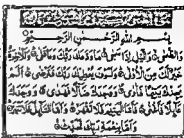 بسم الله الرحمن الرحيم
والضحى والليل إذا سجى ما ودعك ربك وما قلى وللآخرة
خير لك من الأولى ولسوف يعطيك ربك فترضى ألم
يجدك يتيما فآوى ووجدك ضالا فهدى ووجدك
عائلا فأغنى فأما اليتيم فلا تقهر وأما السائل فلا تنهر
وأما بنعمة ربك فحدث